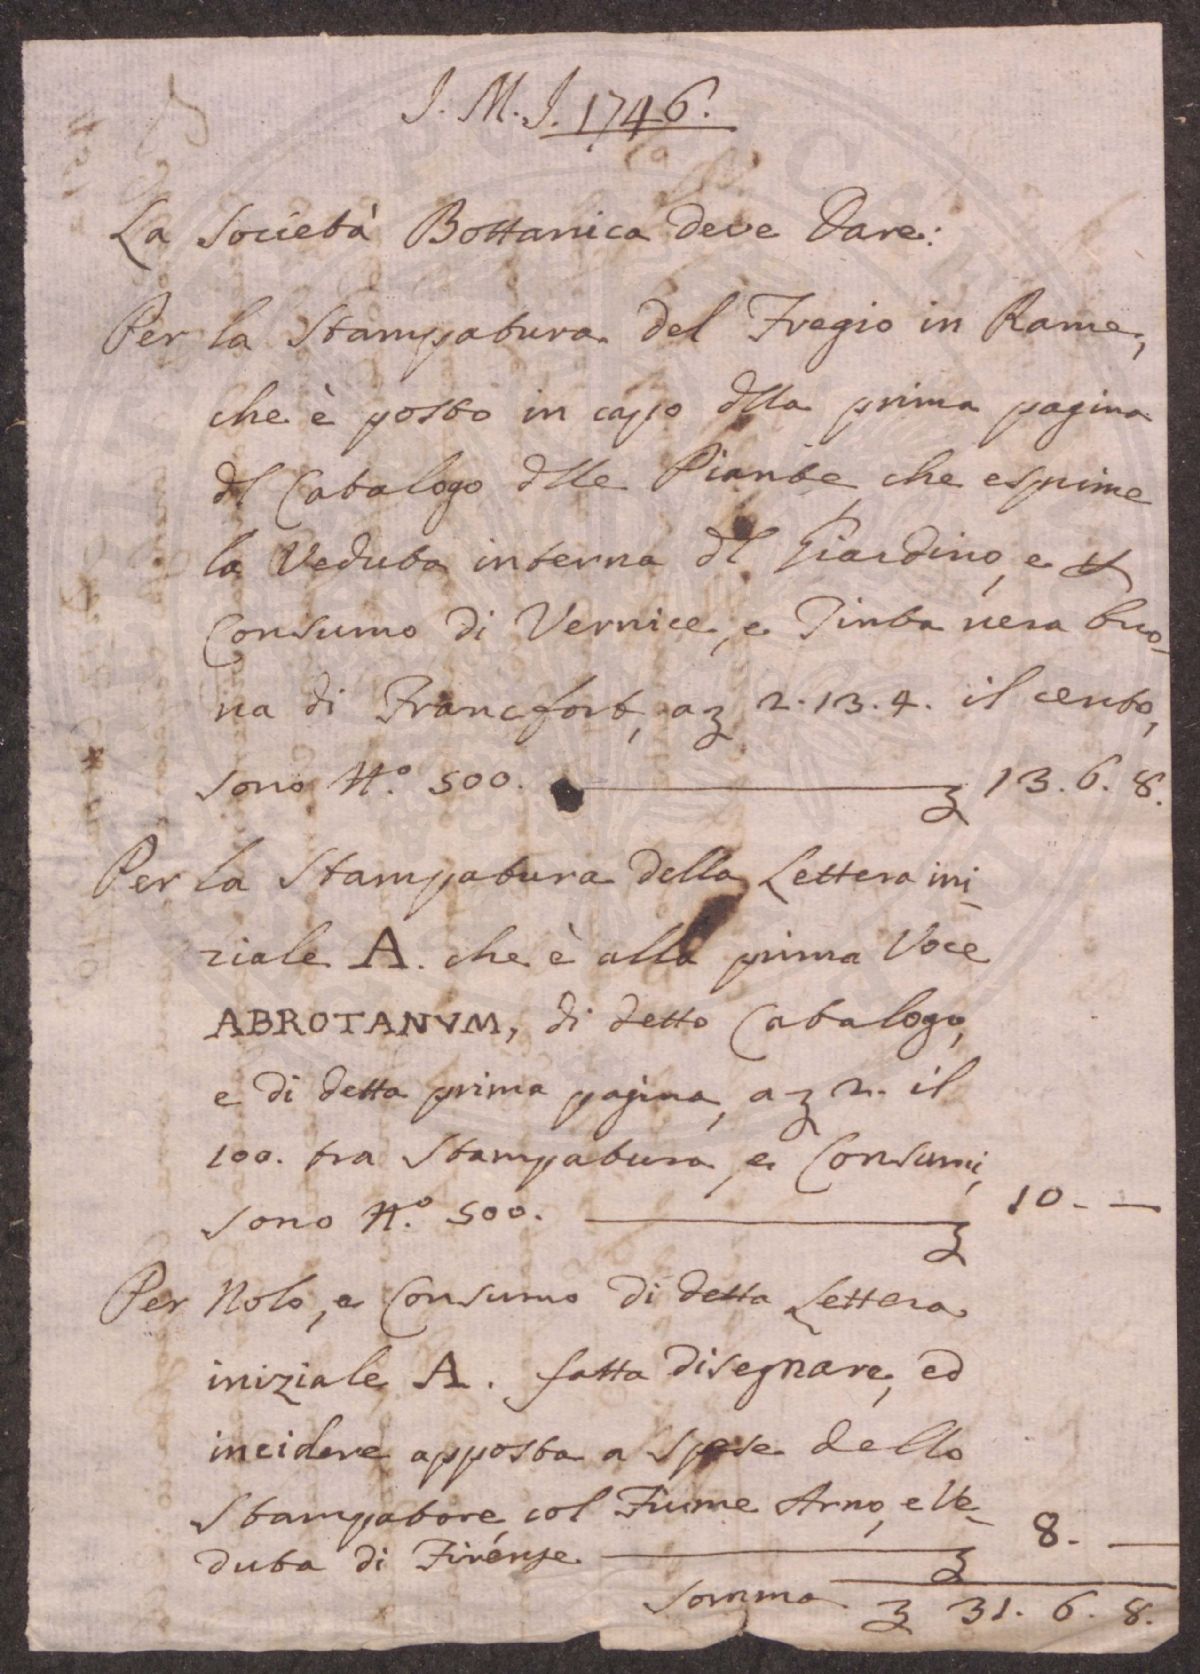 J. M. J. 1746.
La Società Bottanica deve Dare:
Per la Stampatura del Fregio in Rame,
che è posto in capo dlla prima pagina
dl Catalogo dlle Piante, che esprime
la Veduta interna dl Giardino, e
Consumo di Vernice, e Tinta nera buo-
na di Francfort, a 2.13.4. il cento,
sono N.° 500. 13.6.8.
Per la Stampatura della Lettera ini-
ziale A. che è alla prima Voce
ABROTANVM, di detto Catalogo,
e di detta prima pagina, a 2. il
100. tra Stampatura, e Consumi,
sono N.° 500. 10. —
Per Nolo, e Consumo di detta Lettera
iniziale A. fatta disegnare, ed
incidere apposta a spese dello
Stampatore, col Fiume Arno, e Ve-
duta di Firenze. 8. —
Somma 31. 6. 8.